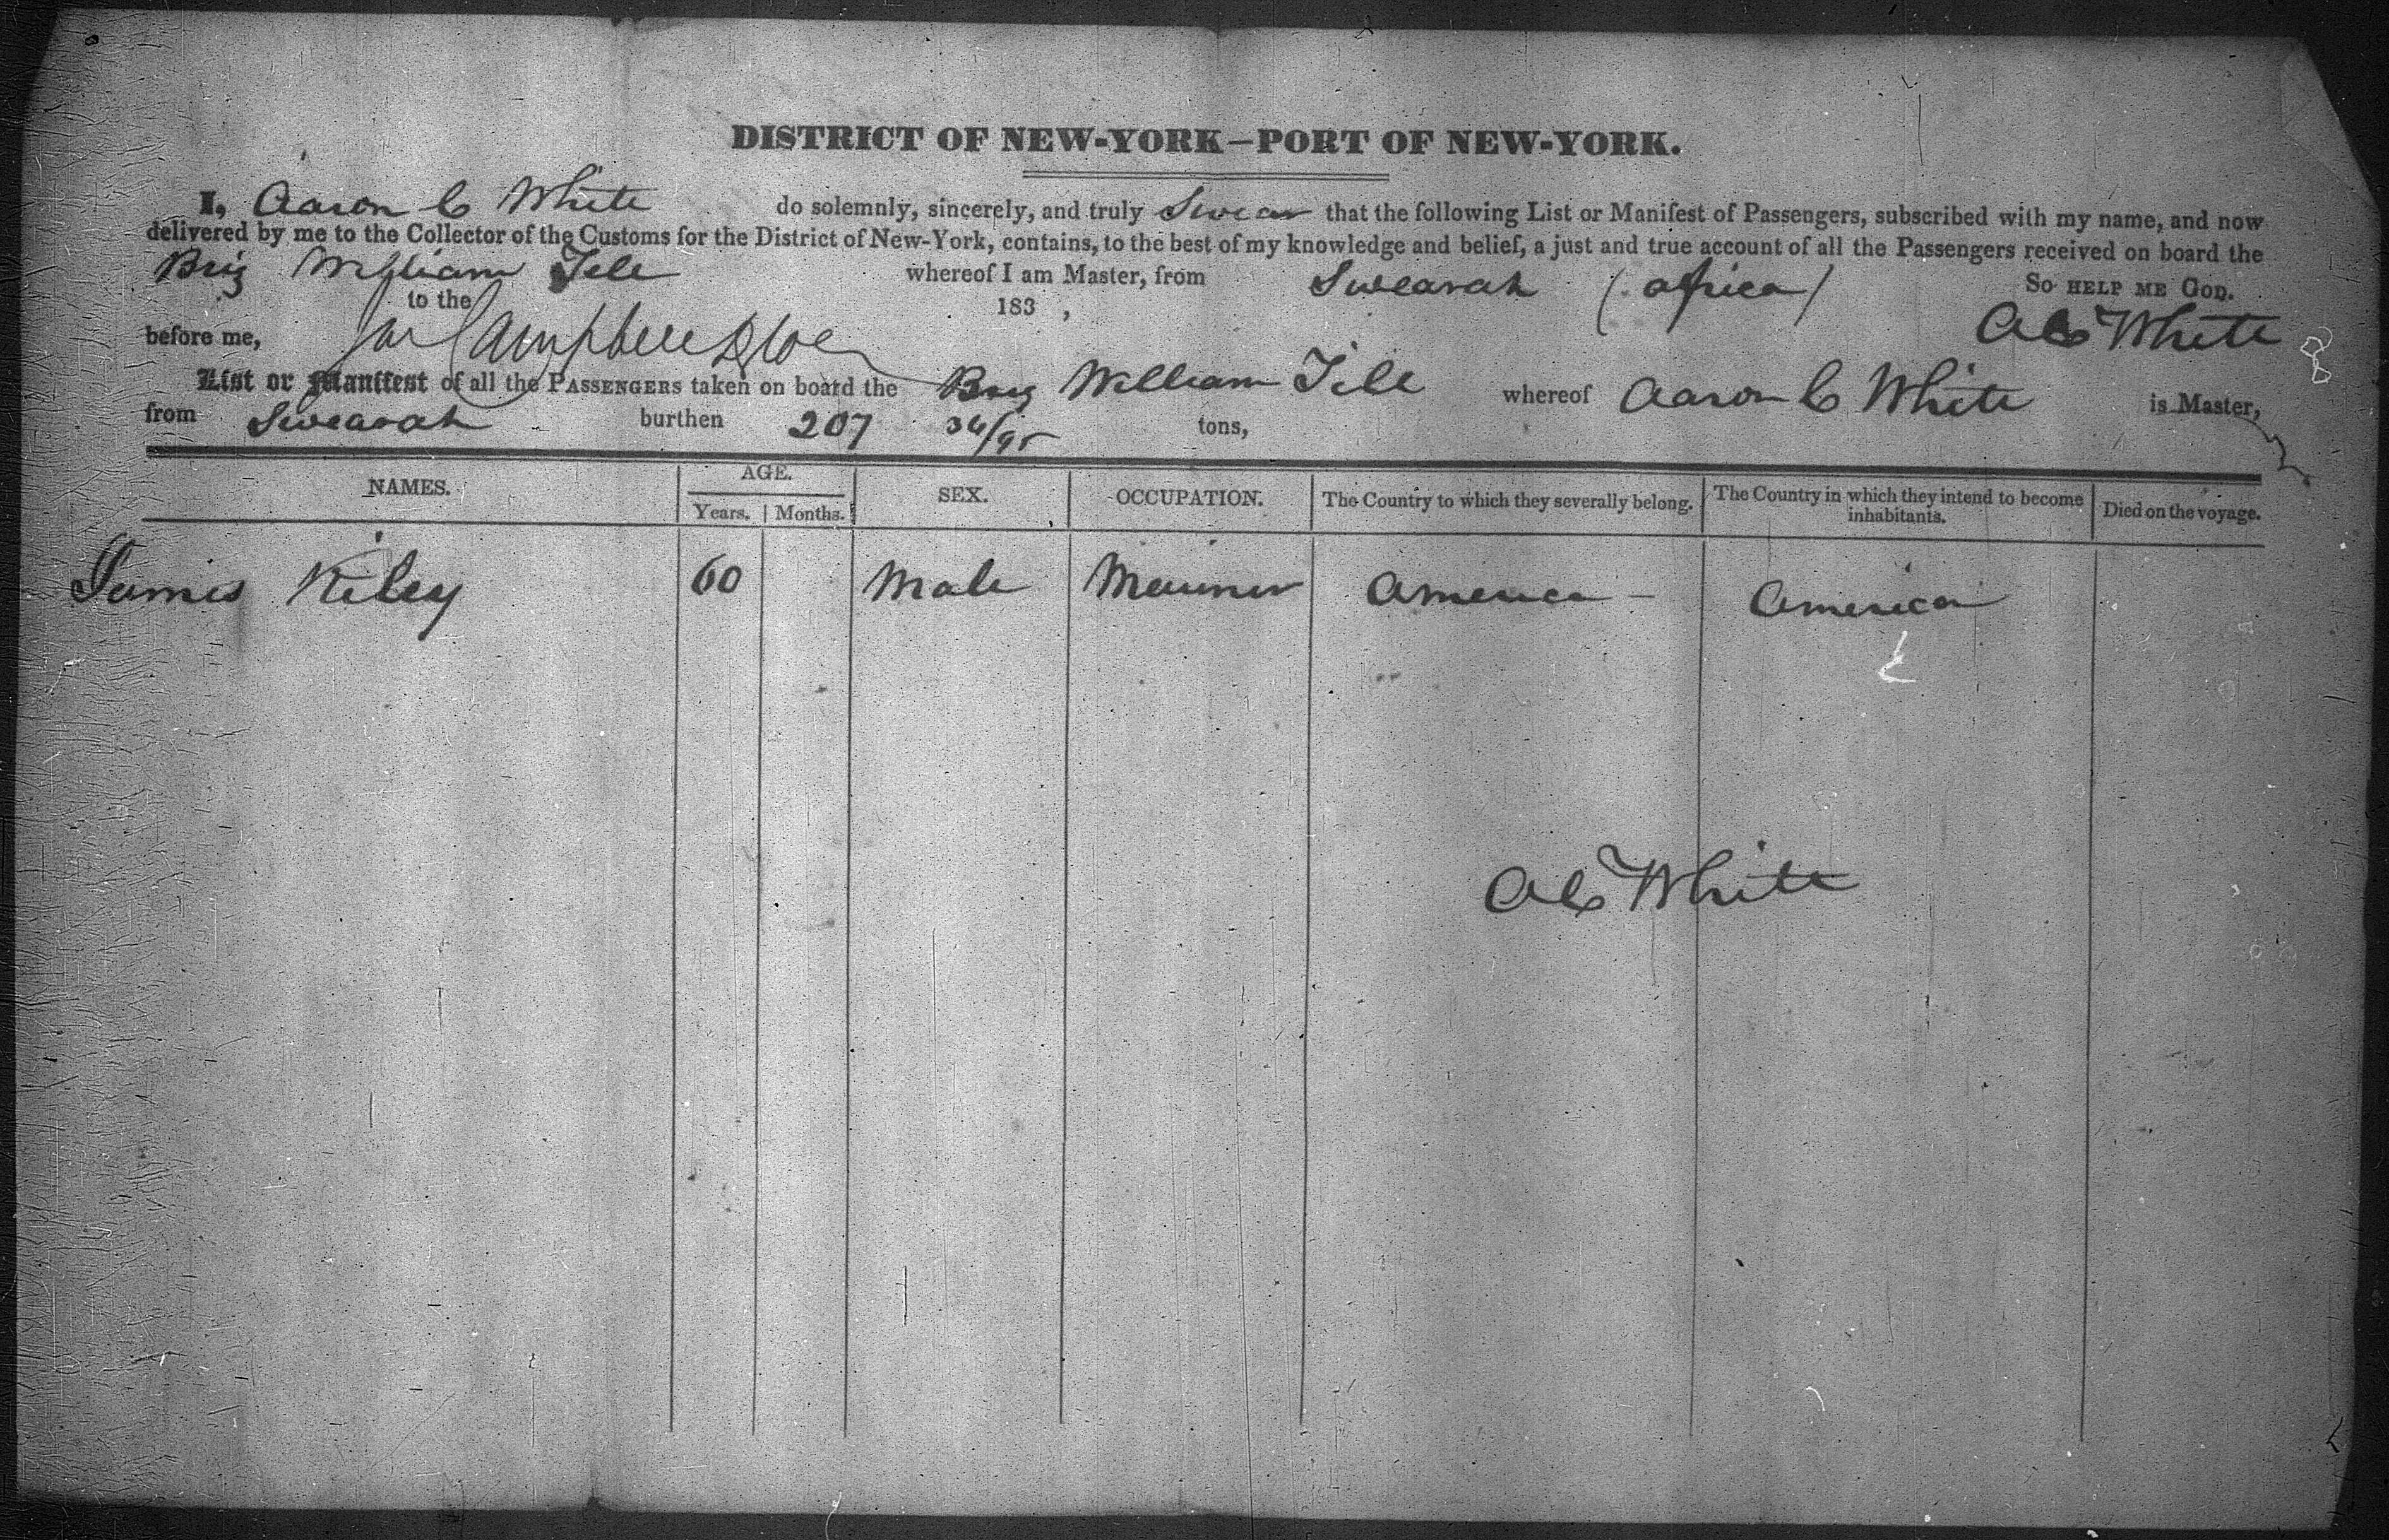 DISTRICT OF NEW-YORK—PORT OF NEW-YORK.
I, Aaron C White do solemnly, sincerely, and truly Swear that the following List or Manifest of Passengers, subscribed with my name, and now
delivered by me to the Collector of the Customs for the District of New-York, contains, to the best of my knowledge and belief, a just and true account of all the Passengers received on board the
Brig William Tell whereof I am Master, from Swearah (africa) So HELP ME GOD.
to the 183 ,
before me, AC White
List or Manifest of all the PASSENGERS taken on board the Brig William Tell whereof Aaron C White is Master,
from Swearah burthen 207 34/95 tons,
NAMES. AGE. SEX. OCCUPATION. The Country to which they severally belong. The Country in which they intend to become inhabitants. Died on the voyage.
Years. Months.
James Riley 60 Male Mariner America - America
AC White